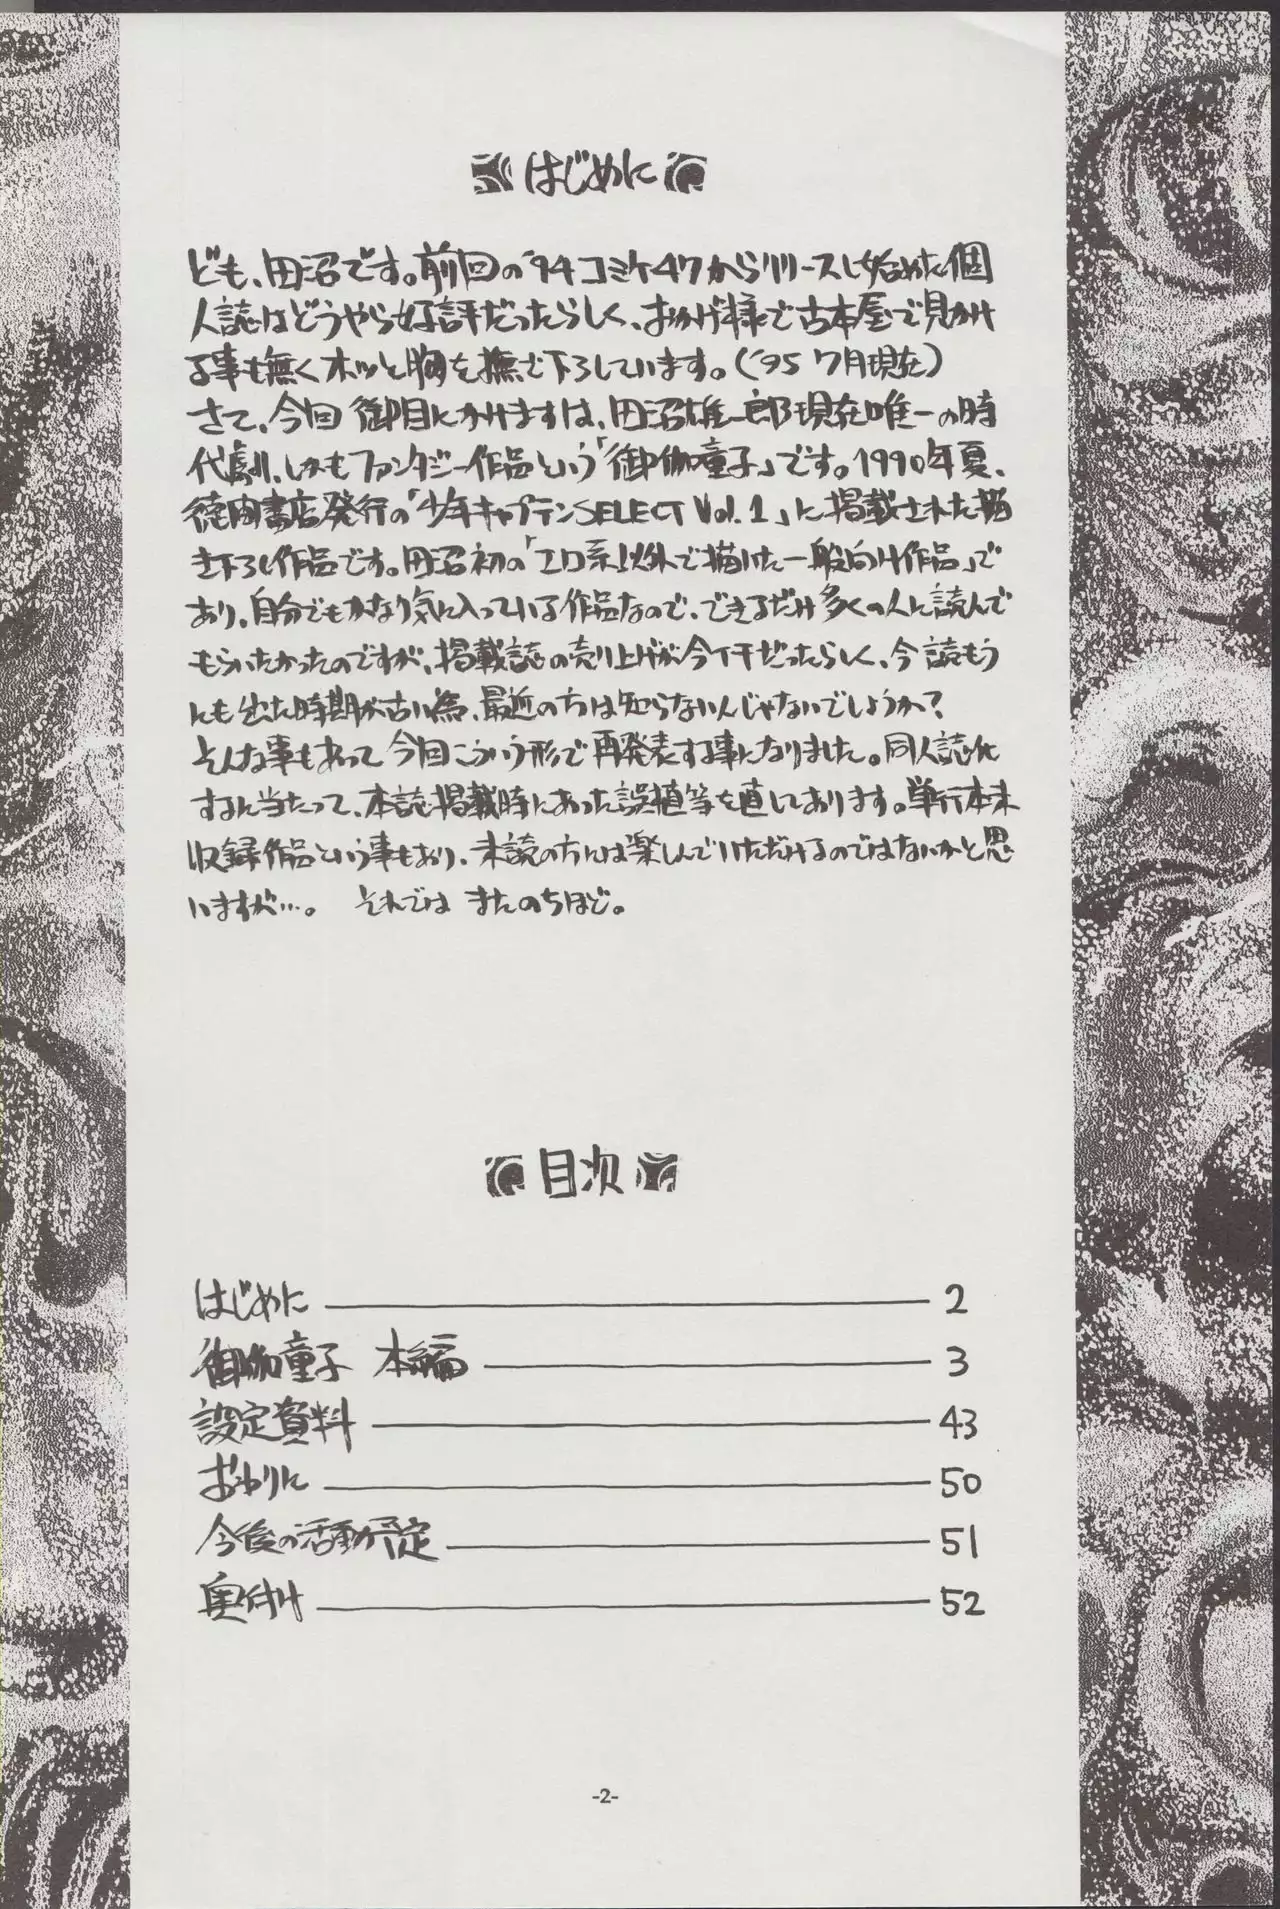 はじめに
ども、田沼です。前回の'94コミケ47からリリースし始めた個
人誌はどうやら好評だったらしく、おかげ様で古本屋で見かけ
る事も無くホッと胸を撫で下ろしています。('95 7月現在)
さて、今回 御目にかけますは、田沼雄一郎現在唯一の時
代劇、しかもファンタジー作品という「御伽童子」です。1990年夏、
徳間書店発行の「少年キャプテンSELECT Vol.1」に掲載された描
き下ろし作品です。田沼初の「エロ系以外で描いた一般向け作品」で
あり、自分でもかなり気に入っている作品なので、できるだけ多くの人に読んで
もらいたかったのですが、掲載誌の売り上げが今イチだったらしく、今読もう
にも出た時期が古い為、最近の方は知らないんじゃないでしょうか?
そんな事もあって今回こういう形で再発表する事になりました。同人誌化
するに当たって、本誌掲載時にあった誤植等を直してあります。単行本未
収録作品という事もあり、未読の方には楽しんでいただけるのではないかと思
いますが…。 それでは またのちほど。
目次
はじめに 2
御伽童子 本編 3
設定資料 43
おわりに 50
今後の活動予定 51
奥付け 52
-2-